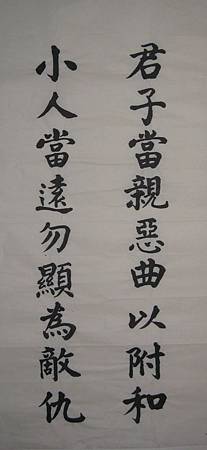 君子當親惡曲以附和
小人當遠勿顯為敵仇